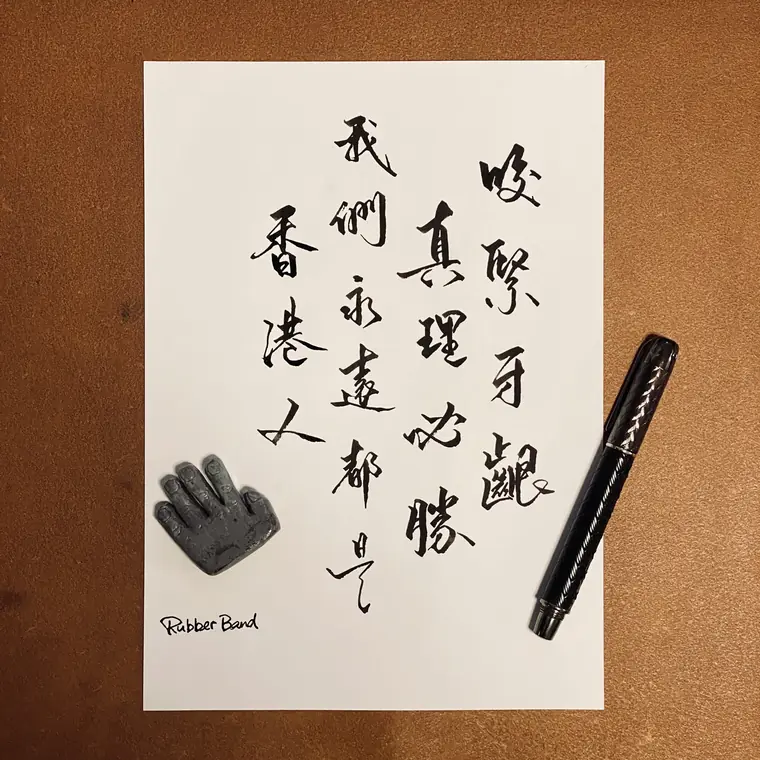 咬緊牙齦
真理必勝
我們永遠都是
香港人
RubberBand